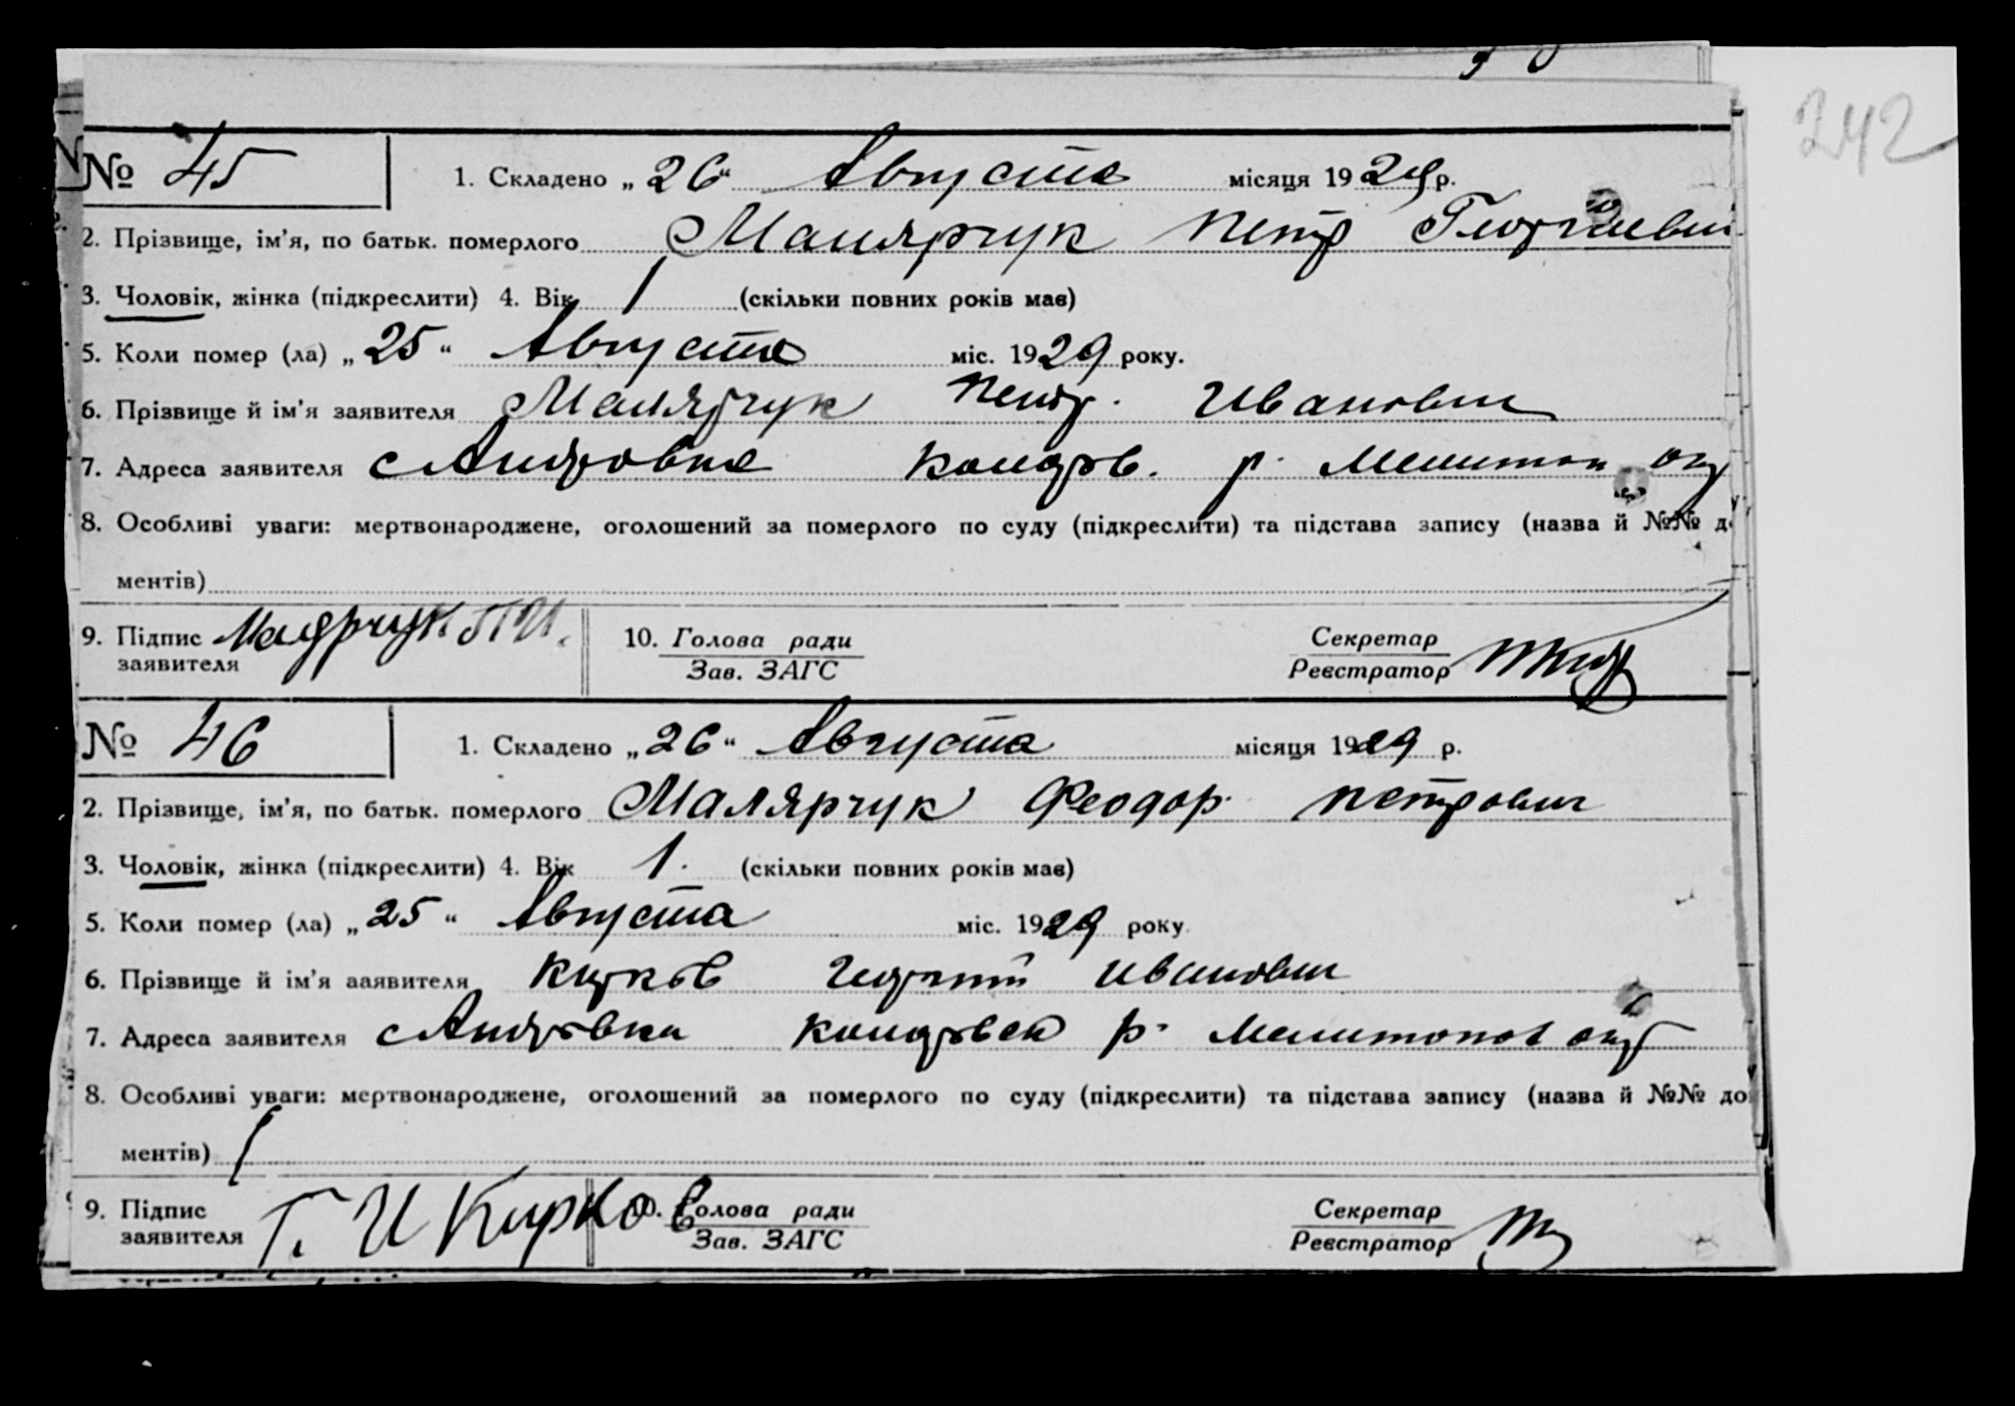 242
№ 45 1. Складено „26“ Августа місяця 1929 р.
2. Прізвище, ім'я, по батьк. померлого Малярчук Петр Георгиевич
3. Чоловік, жінка (підкреслити) 4. Вік 1 (скільки повних років має)
5. Коли помер (ла) „25“ Августа міс. 1929 року.
6. Прізвище й ім'я заявителя Малярчук Петр. Иванович
7. Адреса заявителя с Р. Мелитоп окр
8. Особливі уваги: мертвонароджене, оголошений за померлого по суду (підкреслити) та підстава запису (назва й №№ до
ментів)
9. Підпис Малярчук П И. 10. Голова ради Секретар
заявителя Зав. ЗАГС Реєстратор
№ 46 1. Складено „26“ Августа місяця 1929 р.
2. Прізвище, ім'я, по батьк. померлого Малярчук Феодор Петрович
3. Чоловік, жінка (підкреслити) 4. Вік 1. (скільки повних років має)
5. Коли помер (ла) „25“ Августа міс. 1929 року
6. Прізвище й ім'я заявителя Кирков Георгий Иванович
7. Адреса заявителя с р. Мелитопол окр
8. Особливі уваги: мертвонароджене, оголошений за померлого по суду (підкреслити) та підстава запису (назва й №№ до
ментів)
9. Підпис Г. И Кирков 10. Голова ради Секретар
заявителя Зав. ЗАГС Реєстратор